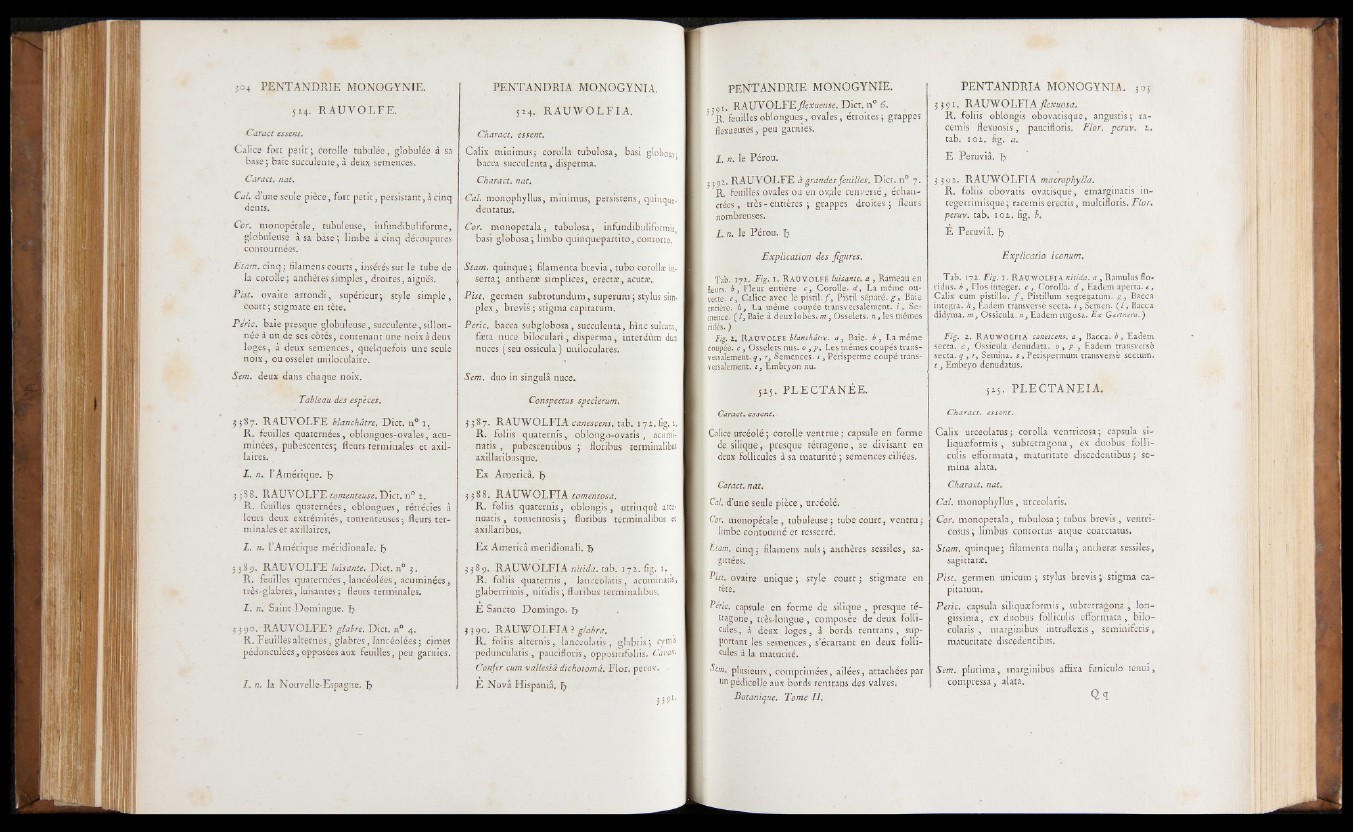 304 PENTANDRIE MONOGYNIE.
524. RAUVOLFE.
Caract. essent.
Calice fort petit; corolle tubulée, globulée à sa
base; baie succulente, à deux semences.
Caract. nat.
Cal. d'une seule pièce, fort petit, persistant, à cinq
dents.
Cor. monopétale, tubuleuse, infundibuliforme,
globuleuse à sa base; limbe à cinq découpures
contournées.
Etam. cinq; filamens courts, insérés sur le tube de
la corolle; anthères simples, droites, aiguës.
Pist. ovaire arrondi, supérieur; style simple,
court; stigmate en tête.
Péric. baie presque globuleuse, succulente, sillon-
née à un de ses côtés, contenant une noix à deux
loges, à deux semences, quelquefois une seule
noix, ou osselet uniloculaire.
Sem. deux dans chaque noix.
Tableau des espèces.
3387. RAUVOLFE blanchâtre. Dict. n° 1,
R. feuilles quaternées, oblongues-ovales, acu-
minées, pubescentes; fleurs terminales et axil-
laires.
L. n. l'Amérique. ♄
3388. RAUVOLFE tomenteuse. Dict. n° 2.
R. feuilles quaternées, oblongues, rétrécies à
leurs deux extrémités, tomenteuses; fleurs ter-
minales et axillaires.
L. n. l'Amérique méridionale. ♄
3389. RAUVOLFE luisante. Dict. n° 3.
R. feuilles quaternées, lancéolées, acuminées,
très-glabres, luisantes; fleurs terminales.
L. n. Saint-Domingue. ♄
3390. RAUVOLFE? glabre. Dict. n° 4.
R. Feuilles alternes, glabres, lancéolées; cimes
pédonculées, opposées aux feuilles, peu garnies.
L. n. la Nouvelle-Espagne. ♄
PENTANDRIA MONOGYNIA.
524. RAUWOLFIA.
Charact. essent.
Calix minimus; corolla tubulosa, basi globosa;
bacca succulenta, disperma.
Charact. nat.
Cal. monophyllus, minimus, persistens, quinque-
dentatus.
Cor. monopetala, tubulosa, infundibuliformis,
basi globosa; limbo quinquepartito, contorto.
Stam. quinque; filamenta brevia, tubo corollæ in-
serta; antheræ simplices, erectæ, acutæ.
Pist. germen subrotundum, superum; stylus sim-
plex, brevis; stigma capitatum.
Peric. bacca subglobosa, succulenta, hinc sulcata,
fœta nuce biloculari, disperma, interdùm duæ
nuces (seu ossicula) uniloculares.
Sem. duo in singulâ nuce.
Conspectus specierum.
3387. RAUWOLFIA canescens. tab. 172, fig. 2.
R. foliis quaternis, oblongo-ovatis, acumi-
natis, pubescentibus; floribus terminalibus
axillaribusque.
Ex Americâ. ♄
3388. RAUWOLFIA tomentosa.
R. foliis quaternis, oblongis, utrinquè atte-
nuatis, tomentosis; floribus terminalibus et
axillaribus.
Ex Americâ meridionali. ♄
3389. RAUWOLFIA nitida. tab. 172. fig. 1.
R. foliis quaternis, lanceolatis, acuminatis,
glaberrimis, nitidis; floribus terminalibus.
È Sancto Domingo. ♄
3390. RAUWOLFIA? glabra.
R. foliis alternis, lanceolatis, glabris; cymis
pedunculatis, paucifloris, oppositifoliis. Cavan.
Confer cum vallesiâ dichotomâ. Flor. peruv.
È Novâ Hispaniâ. ♄
3391.
PENTANDRIE MONOGYNIE.
3391. RAUVOLFE flexueuse. Dict. n° 6.
R. feuilles oblongues, ovales, étroites; grappes
flexueuses, peu garnies.
L. n. le Pérou.
3392. RAUVOLFE à grandes feuilles. Dict. n° 7.
R. feuilles ovales ou en ovale renversé, échan-
crées, très-entières; grappes droites; fleurs
nombreuses.
L. n. le Pérou. ♄
Explication des figures.
Tab. 172. Fig. 1. RAUVOLFE luisante. a, Rameau en
fleurs. b, Fleur entière. c, Corolle. d, La même ou-
verte. e, Calice avec le pistil. f, Pistil séparé. g, Baie
entière. h, La même coupée transversalement. i, Se-
mence. (l, Baie à deux lobes. m, Osselets. n, les mêmes
ridés.)
Fig. 2. RAUVOLFE blanchâtre. a, Baie. b, La même
coupée. c, Osselets nus. o, p, Les mêmes coupés trans-
versalement. q, r, Semences. s, Périsperme coupé trans-
versalement. t, Embryon nu.
525. PLECTANÉE.
Caract. essent.
Calice urcéolé; corolle ventrue; capsule en forme
de silique, presque tétragone, se divisant en
deux follicules à sa maturité; semences ciliées.
Caract. nat.
Cal. d'une seule pièce, urcéolé.
Cor. monopétale, tubuleuse; tube court, ventru;
limbe contourné et resserré.
Etam. cinq; filamens nuls; anthères sessiles, sa-
gittées.
Pist. ovaire unique; style court; stigmate en
tête.
Péric. capsule en forme de silique, presque té-
tragone, très-longue, composée de deux folli-
cules, à deux loges, à bords rentrans, sup-
portant les semences, s'écartant en deux folli-
cules à la maturité.
Sem. plusieurs, comprimées, ailées, attachées par
un pédicelle aux bords rentrans des valves.
Botanique. Tome II.
PENTANDRIA MONOGYNIA. 305
3391. RAUWOLFIA flexuosa.
R. foliis oblongis obovatisque, angustis; ra-
cemis flexuosis, paucifloris. Flor. peruv. 2.
tab. 102. fig. a.
E Peruviâ. ♄
3392. RAUWOLFIA macrophylla.
R. foliis obovatis ovatisque, emarginatis in-
tegerrimisque; racemis erectis, multifloris. Flor.
peruv. tab. 102. fig. b.
È Peruviâ. ♄
Explicatio iconum.
Tab. 172. Fig. 1. RAUWOLFIA nitida. a, Ramulus flo-
ridus. b, Flos integer. c, Corolla. d, Eadem aperta. e,
Calix cum pistillo. f, Pistillum segregatum. g, Bacca
integra. h, Eadem transversè secta. i, Semen. (l, Bacca
didyma. m, Ossicula. n, Eadem rugosa. Ex Gærtnero.)
Fig. 2. RAUWOLFIA canescens. a, Bacca. b, Eadem
secta. c, Ossicula denudata. o, p, Eadem transversè
secta. q, r, Semina. s, Perispermum transversè sectum.
t, Embryo denudatus.
525. PLECTANEIA.
Charact. essent.
Calix urceolatus; corolla ventricosa; capsula si-
liquæformis, subtetragona, ex duobus folli-
culis efformata, maturitate discedentibus; se-
mina alata.
Charact. nat.
Cal. monophyllus, urceolaris.
Cor. monopetala, tubulosa; tubus brevis, ventri-
cosus; limbus contortus atque coarctatus.
Stam. quinque; filamenta nulla; antheræ sessiles,
sagittatæ.
Pist. germen unicum; stylus brevis; stigma ca-
pitatum.
Peric. capsula siliquæformis, subtetragona, lon-
gissima, ex duobus folliculis efformata, bilo-
cularis, marginibus introflexis, seminiferis,
maturitate discedentibus.
Sem. plurima, marginibus affixa funiculo tenui,
compressa, alata.
Q q